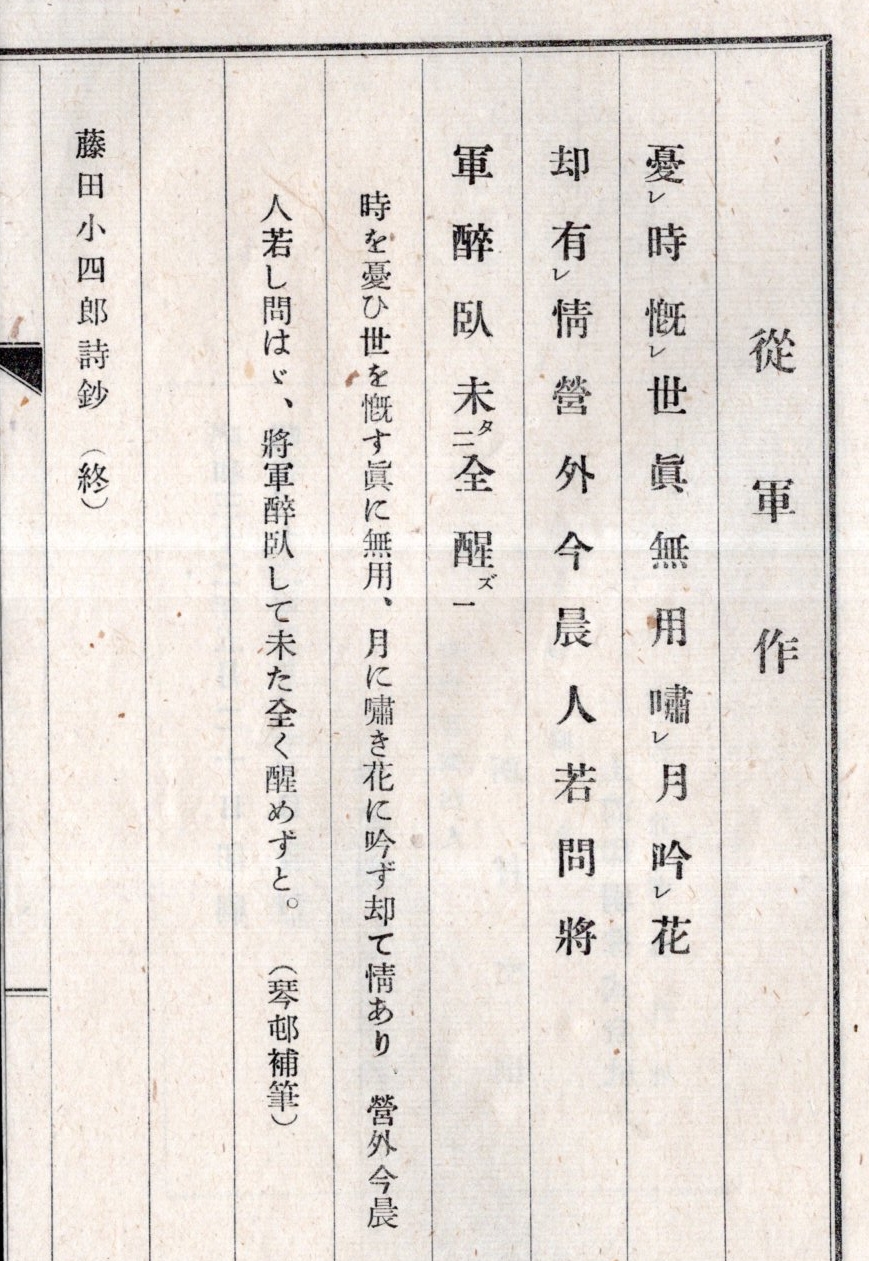 從軍作
憂レ時慨レ世眞無用嘯レ月吟レ花
却有レ情營外今晨人若問將
軍醉臥未タ二全醒ズ一
時を憂ひ世を慨す眞に無用、月に嘯き花に吟ず却て情あり、營外今晨
人若し問はゞ、將軍醉臥して未た全く醒めずと。（琴邨補筆）
藤田小四郎詩鈔（終）